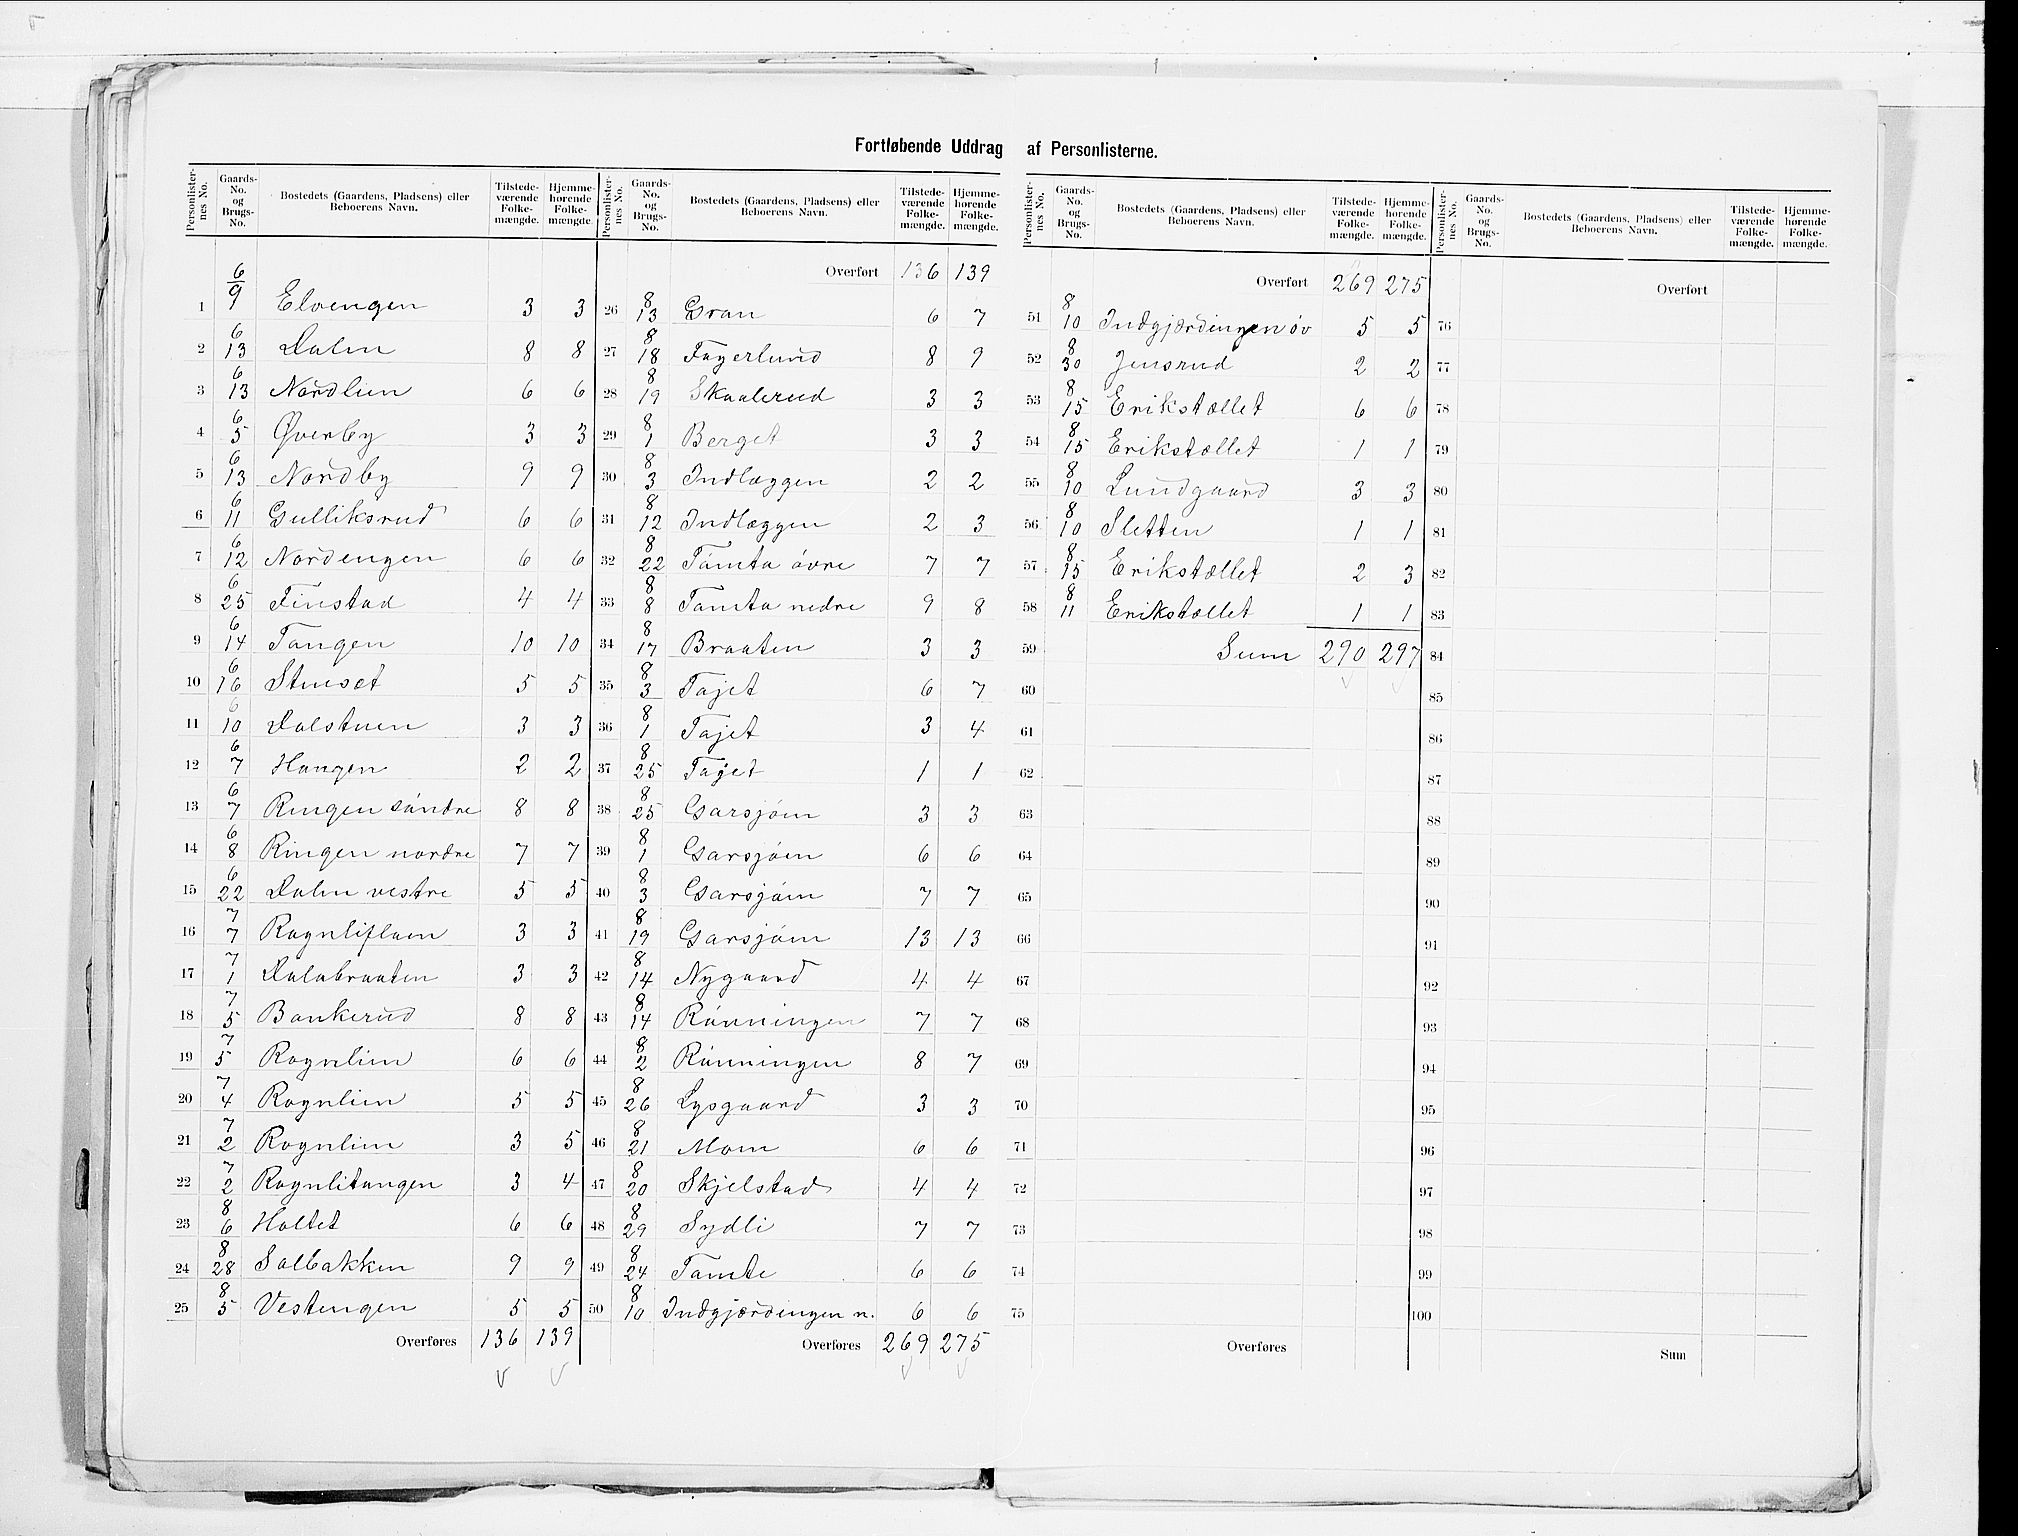 Fortløbende Uddrag af Personlisterne.
Personlister-nes No. | Gaards-No. og Brugs-No. | Bostedets (Gaardens, Pladsens) eller Beboerens Navn. | Tilstede-værende Folke-mængde. | Hjemme-hørende Folke-mængde.
1 6/9 Elvengen 3 3
2 6/13 Dalm 8 8
3 6/13 Nordlien 6 6
4 6/5 Øverby 3 3
5 6/13 Nordby 9 9
6 6/11 Gulliksrud 6 6
7 6/12 Nordengen 6 6
8 6/25 Finstad 4 4
9 6/14 Tangen 10 10
10 6/16 Stueset 5 5
11 6/10 Dalstuen 3 3
12 6/7 Haugen 2 2
13 6/7 Ringen søndre 8 8
14 6/8 Ringen nordre 7 7
15 6/22 Dalm vestre 5 5
16 7/7 Rognliflam 3 3
17 7/1 Dalabraaten 3 3
18 7/5 Bankerud 8 8
19 7/5 Rognlien 6 6
20 7/4 Rognlien 5 5
21 7/2 Rognlien 3 5
22 7/2 Rognlitangen 3 4
23 8/6 Holtet 6 6
24 8/28 Solbakken 9 9
25 8/5 Vestengen 5 5
Overføres 136 139
Personlister-nes No. | Gaards-No. og Brugs-No. | Bostedets (Gaardens, Pladsens) eller Beboerens Navn. | Tilstede-værende Folke-mængde. | Hjemme-hørende Folke-mængde.
Overført 136 139
26 8/13 Gran 6 7
27 8/18 Fagerlund 8 9
28 8/19 Skaalerud 3 3
29 8/1 Berget 3 3
30 8/3 Indlæggen 2 2
31 8/12 Indlæggen 2 3
32 8/22 Tømta øvre 7 7
33 8/8 Tømta nedre 9 8
34 8/17 Braaten 3 3
35 8/3 Tajet 6 7
36 8/1 Tajet 3 4
37 8/25 Tajet 1 1
38 8/25 Garsjøen 3 3
39 8/1 Garsjøen 6 6
40 8/3 Garsjøen 7 7
41 8/19 Garsjøen 13 13
42 8/14 Nygaard 4 4
43 8/14 Rønningen 7 7
44 8/2 Rønningen 8 7
45 8/26 Lysgaard 3 3
46 8/21 Moen 6 6
47 8/20 Skjelstad 4 4
48 8/29 Sydli 7 7
49 8/24 Tomte 6 6
50 8/10 Indgjærdingen n. 6 6
Overføres 269 275
Personlister-nes No. | Gaards-No. og Brugs-No. | Bostedets (Gaardens, Pladsens) eller Beboerens Navn. | Tilstede-værende Folke-mængde. | Hjemme-hørende Folke-mængde.
Overført 269 275
51 8/10 Indgjærdingen øv 5 5
52 8/30 Jensrud 2 2
53 8/15 Erikstællet 6 6
54 8/15 Erikstællet 1 1
55 8/10 Lundgaard 3 3
56 8/10 Sletten 1 1
57 8/15 Erikstællet 2 3
58 8/11 Erikstællet 1 1
59 Sum 290 297
60
61
62
63
64
65
66
67
68
69
70
71
72
73
74
75
Overføres
Personlister-nes No. | Gaards-No. og Brugs-No. | Bostedets (Gaardens, Pladsens) eller Beboerens Navn. | Tilstede-værende Folke-mængde. | Hjemme-hørende Folke-mængde.
Overført
76
77
78
79
80
81
82
83
84
85
86
87
88
89
90
91
92
93
94
95
96
97
98
99
100
Sum